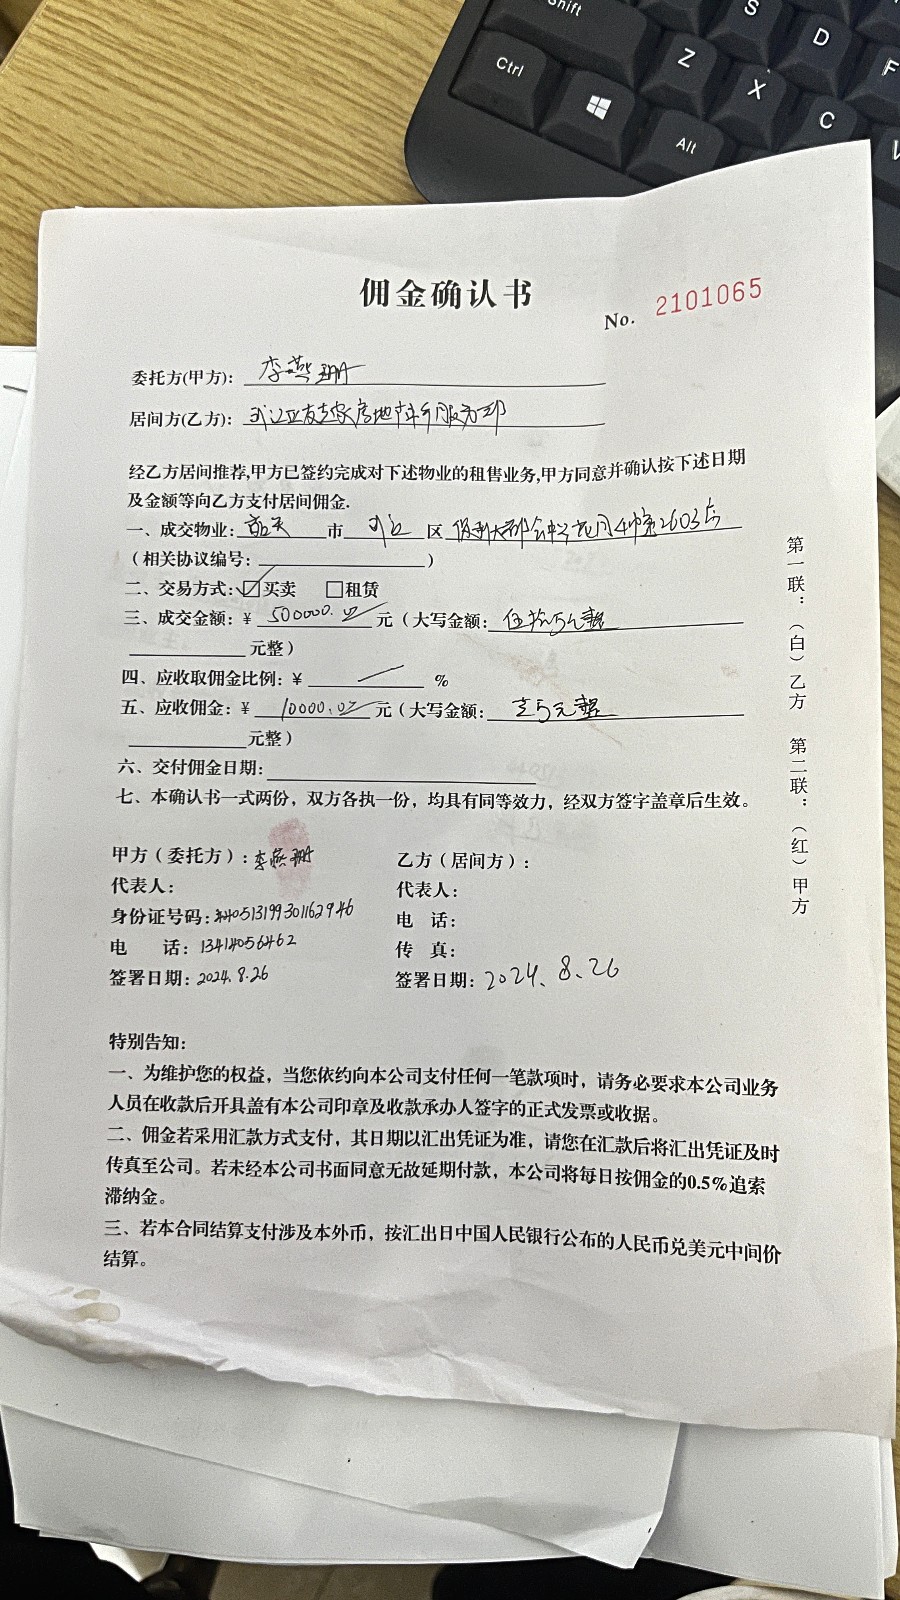 Shift
S
D
F
Ctrl
Z
X
C
Alt
佣金确认书
No. 2101065
委托方(甲方): 李燕珊
居间方(乙方):
经乙方居间推荐,甲方已签约完成对下述物业的租售业务,甲方同意并确认按下述日期
及金额等向乙方支付居间佣金.
一、成交物业: 韶关 市 武江 区 保利大都会 花园4幢2603房
(相关协议编号: )
二、交易方式: ☑买卖 □租赁
三、成交金额: ¥ 500000.00 元 (大写金额: 伍拾万元整
元整)
四、应收取佣金比例: ¥ / %
五、应收佣金: ¥ 10000.00 元 (大写金额: 壹万元整
元整)
六、交付佣金日期:
七、本确认书一式两份，双方各执一份，均具有同等效力，经双方签字盖章后生效。
第一联：（白）乙方 第二联：（红）甲方
甲方（委托方）: 李燕珊
乙方（居间方）:
代表人:
代表人:
身份证号码: 440513199301162946
电 话:
电 话: 13414056462
传 真:
签署日期: 2024.8.26
签署日期: 2024.8.26
特别告知:
一、为维护您的权益，当您依约向本公司支付任何一笔款项时，请务必要求本公司业务
人员在收款后开具盖有本公司印章及收款承办人签字的正式发票或收据。
二、佣金若采用汇款方式支付，其日期以汇出凭证为准，请您在汇款后将汇出凭证及时
传真至公司。若未经本公司书面同意无故延期付款，本公司将每日按佣金的0.5%追索
滞纳金。
三、若本合同结算支付涉及本外币，按汇出日中国人民银行公布的人民币兑美元中间价
结算。